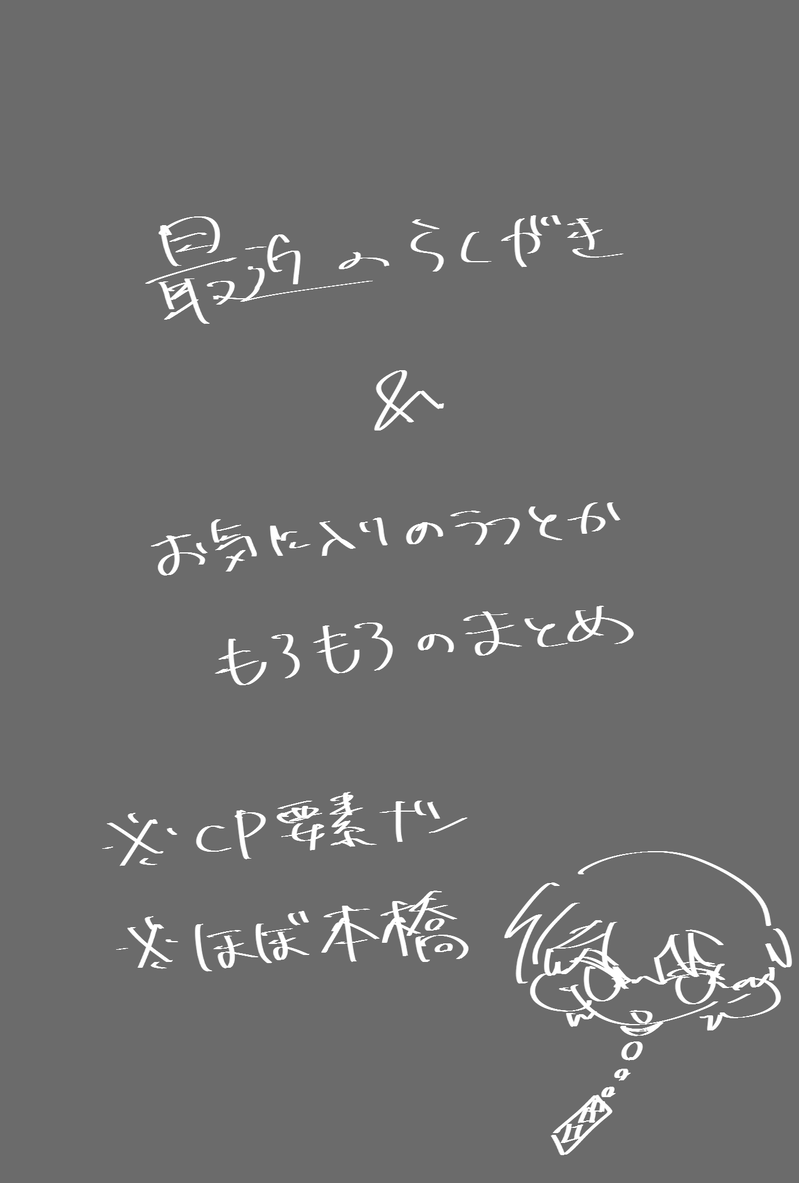 最近のらくがき
&
お気に入りのラフとか
もろもろのまとめ
※CP要素ナシ
※ほぼ本橋